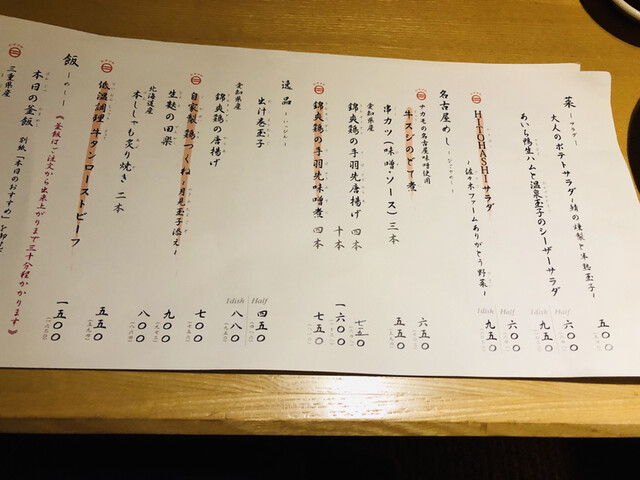 菜 ～サラダ～
大人のポテトサラダ ～鯖の燻製と半熟玉子～
五〇〇
あいち鴨生ハムと温泉玉子のシーザーサラダ
Half 六〇〇
1dish 九五〇
HITOHASHIサラダ
～佐々木ファームありがとう野菜～
Half 六〇〇
1dish 九五〇
名古屋めし ～なごやめし～
ナカモの名古屋味噌使用
牛スジのどて煮
六五〇
串カツ（味噌・ソース）三本
五五〇
愛知県産
錦爽鶏の手羽先唐揚げ 四本
七五〇
十本
一六〇〇
錦爽鶏の手羽先味噌煮 四本
七五〇
逸品 ～いっぴん～
出汁巻玉子
Half 四五〇
1dish 八八〇
愛知県産
錦爽鶏の唐揚げ
七〇〇
自家製鶏つくね ～月見玉子添え～
生麩の田楽
九〇〇
北海道産
本ししゃも炙り焼き 二本
八〇〇
低温調理 牛タンローストビーフ
五五〇
飯 ～めし～
《釜飯はご注文から出来上がりまで三十分程かかります》
本日の釜飯 別紙「本日のおすすめ」を
一五〇〇
三重県産